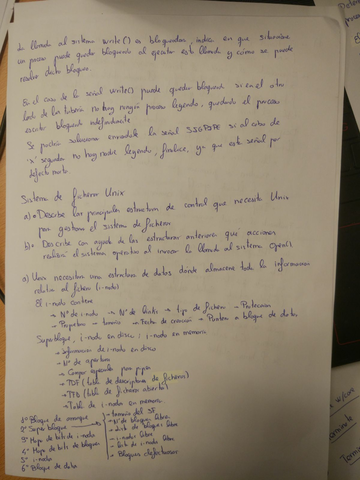 La llamada al sistema write() es bloqueador, indica en que situaciones
un proceso puede quedar bloqueado al ejecutar esta llamada y cómo se puede
realizar dicho bloqueo
En el caso de la señal write() puede quedar bloqueado si en el otro
lado de la tubería no hay ningún proceso leyendo, quedando el proceso
escritor bloqueado indefinidamente
Se podría solucionar enviandole la señal SIGPIPE si al cabo de
'x' segundos no hay nadie leyendo, ya que esta señal por
defecto mata.
Sistema de ficheros Unix
a) Describe las principales estructuras de control que necesita Unix
para gestionar el sistema de ficheros
b) Describe con ayuda de las estructuras anteriores que acciones
realiza el sistema operativo al invocar la llamada al sistema open()
a) Unix necesita una estructura de datos donde almacena toda la información
relativa al fichero (i-nodo)
El i-nodo contiene
→ Nº de i-nodo → Nº de links → tipo de fichero → Protección
→ Propietario → tamaño → Fecha de creación → Puntero a bloques de datos
Superbloque, i-nodo en disco, i-nodo en memoria
→ Información de i-nodo en disco
→ Nº de apertura
→ Campo
→ TDF (tabla de descriptores de ficheros)
→ TFA (tabla de ficheros abiertos)
→ Tabla de i-nodos en memoria
1º Bloque de arranque
2º Super bloque
3º Mapa de bits de i-nodo
4º Mapa de bits de bloques
5º i-nodo
6º Bloque de datos
→ tamaño del SF
→ Nº de bloques libres
→ Lista de bloques libres
→ i-nodos libres
→ lista de i-nodos libres
→ Bloques defectuosos